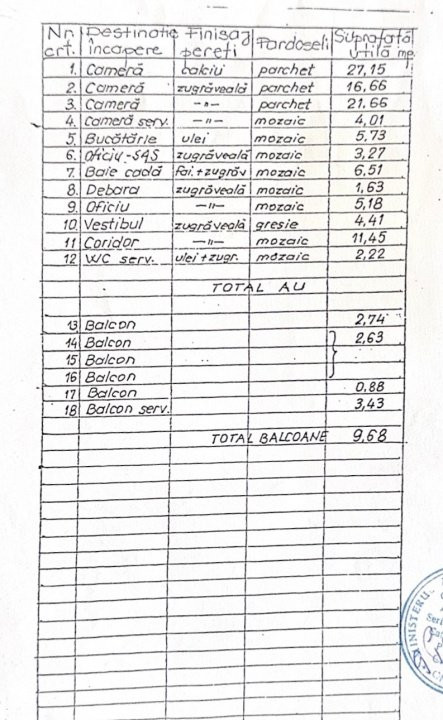 Nr. crt. | Destinație încăpere | Finisaj pereți | Pardoseli | Suprafață utilă mp.
1. Cameră calciu parchet 27,15
2. Cameră zugrăveală parchet 16,66
3. Cameră —"— parchet 21.66
4. Cameră serv. —"— mozaic 4,01
5. Bucătărie ulei mozaic 5.73
6. Oficiu-SAS zugrăveală mozaic 3,27
7. Baie cadă Fai.+zugrăv mozaic 6.51
8. Debara zugrăveală mozaic 1,63
9. Oficiu —"— mozaic 5,18
10. Vestibul zugrăveală gresie 4,41
11 Coridor —"— mozaic 11,45
12 WC serv. ulei+zugr. mozaic 2,22
TOTAL AU
13 Balcon 2,74
14 Balcon 2,63
15 Balcon
16 Balcon
17 Balcon 0.88
18 Balcon serv. 3,43
TOTAL BALCOANE 9,68
MINISTERU